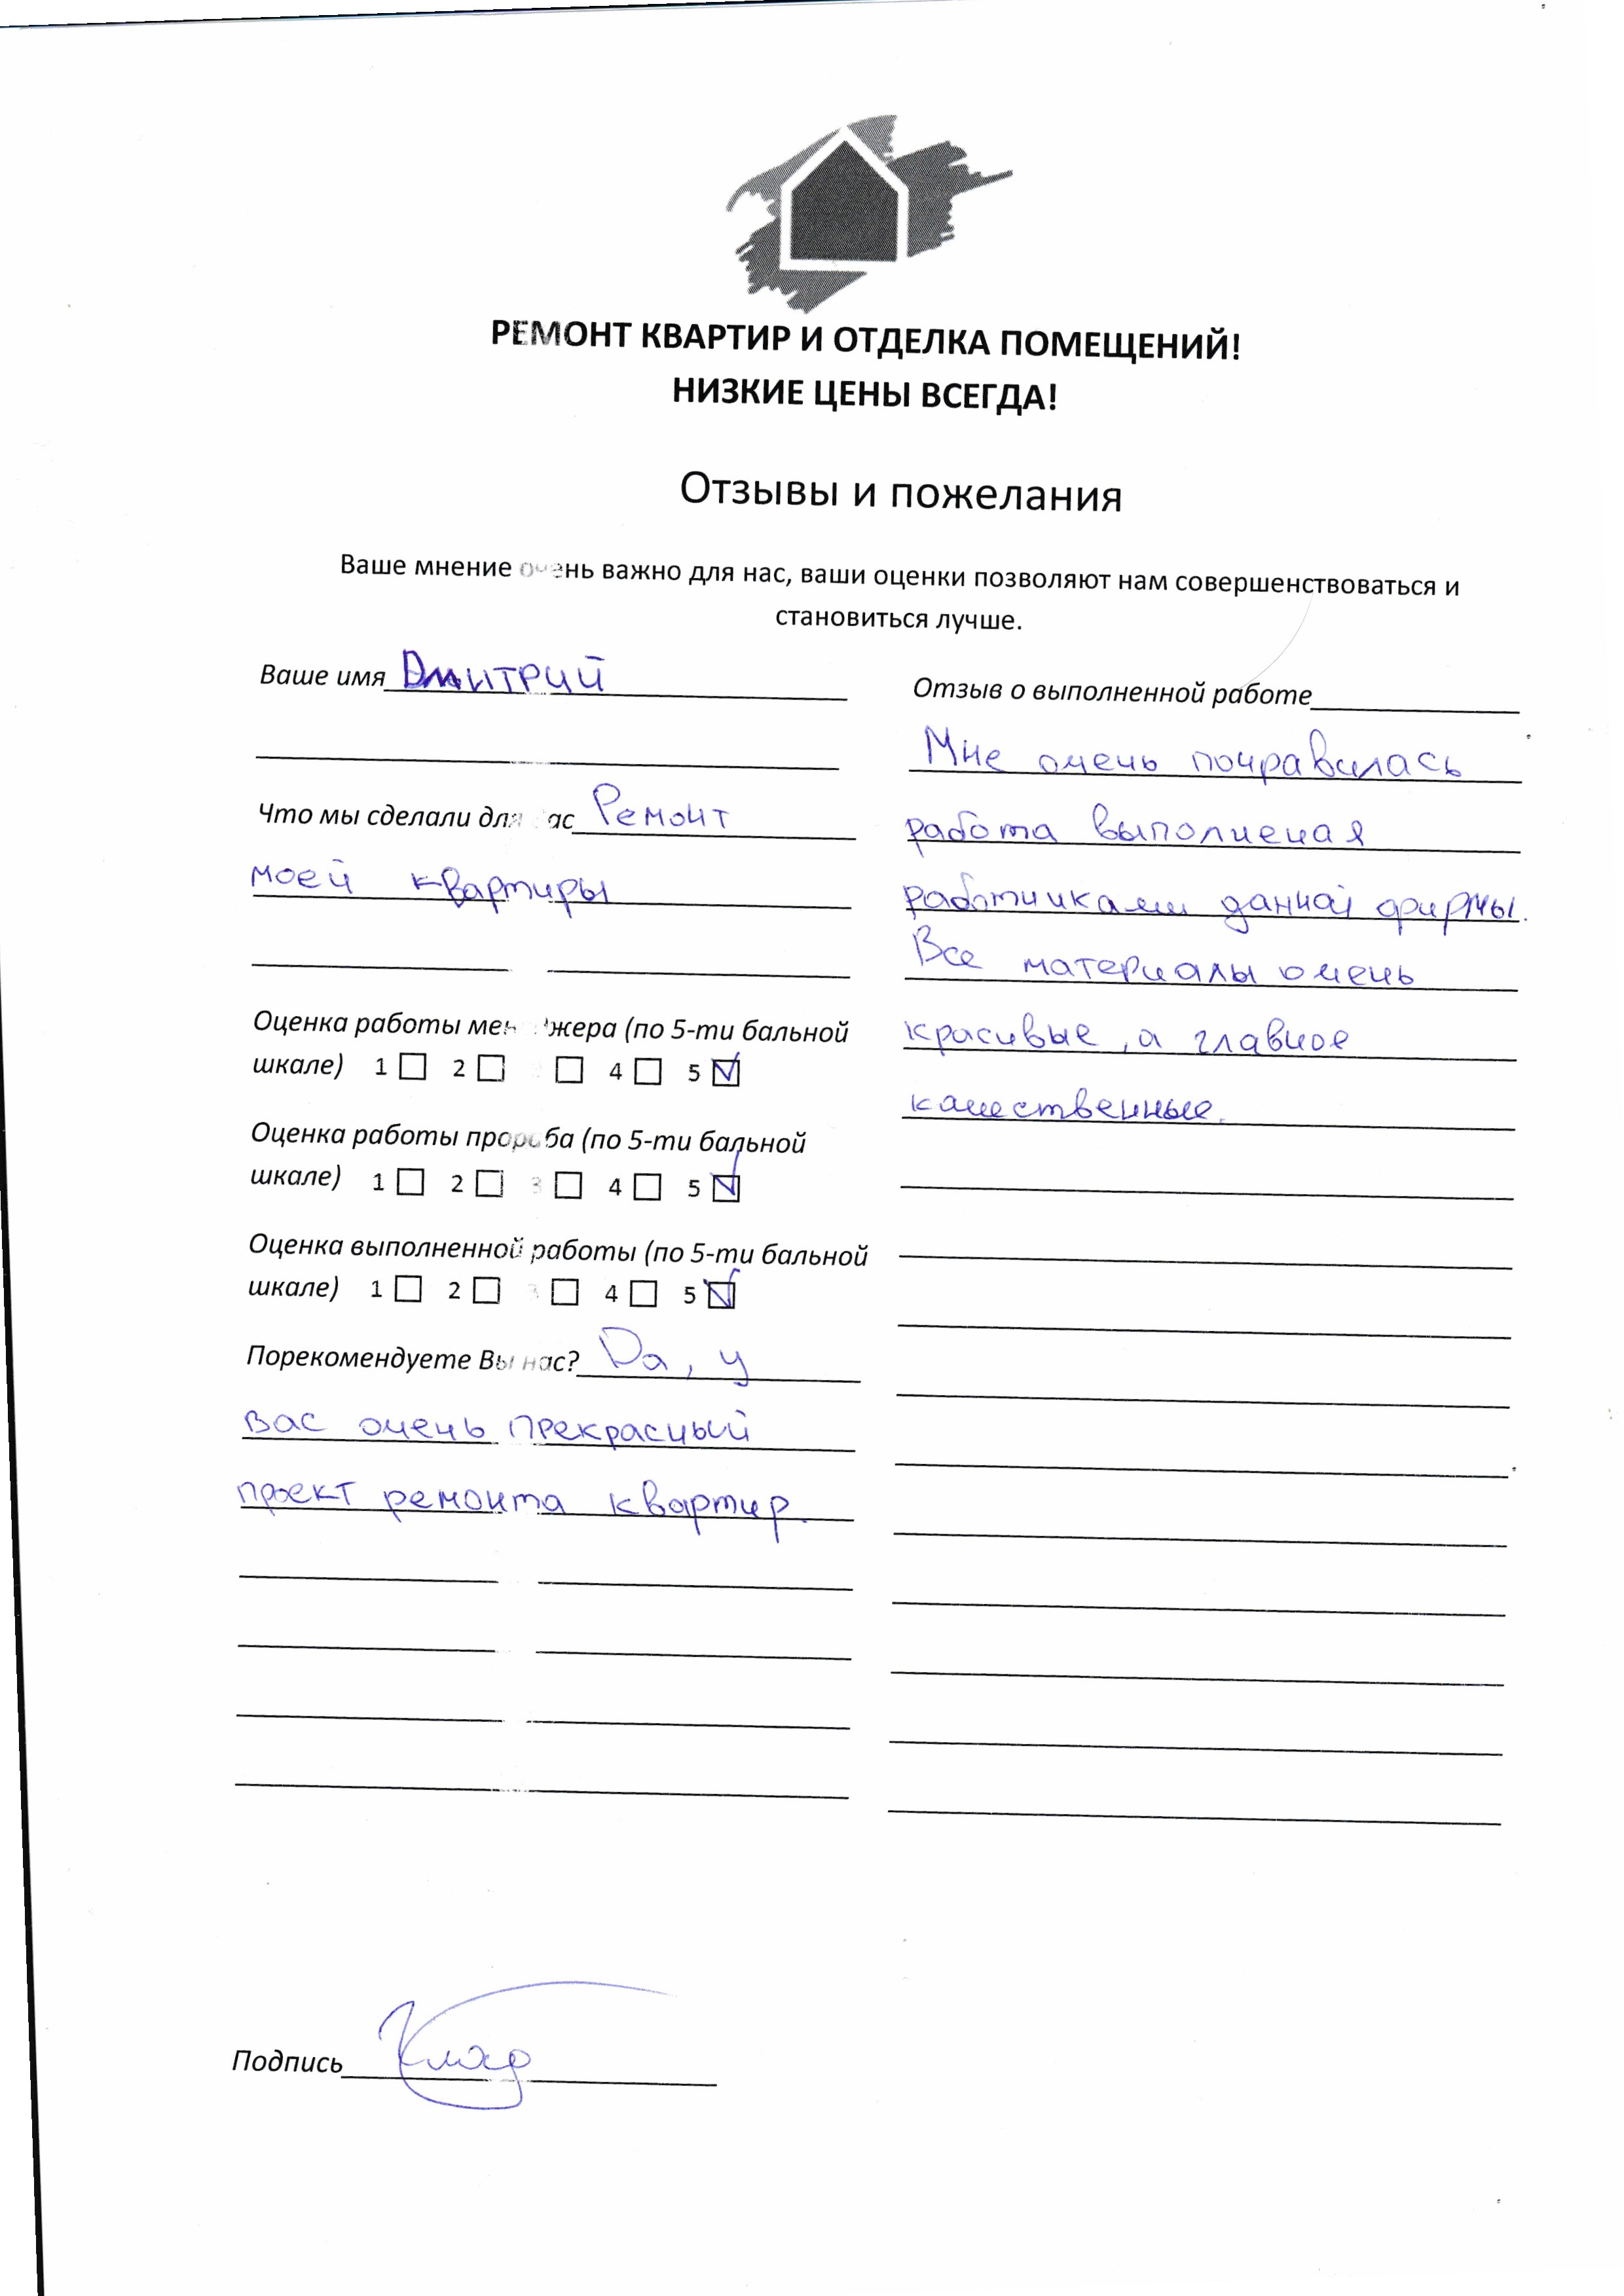 РЕМОНТ КВАРТИР И ОТДЕЛКА ПОМЕЩЕНИЙ!
НИЗКИЕ ЦЕНЫ ВСЕГДА!
Отзывы и пожелания
Ваше мнение очень важно для нас, ваши оценки позволяют нам совершенствоваться и
становиться лучше.
Ваше имя Дмитрий
Что мы сделали для вас Ремонт
моей квартиры
Оценка работы менеджера (по 5-ти бальной
шкале) 1 ☐ 2 ☐ ☐ 4 ☐ 5 ☑
Оценка работы прораба (по 5-ти бальной
шкале) 1 ☐ 2 ☐ 3 ☐ 4 ☐ 5 ☑
Оценка выполненной работы (по 5-ти бальной
шкале) 1 ☐ 2 ☐ 3 ☐ 4 ☐ 5 ☑
Порекомендуете Вы нас? Да, у
вас очень прекрасный
проект ремонта квартир.
Отзыв о выполненной работе
Мне очень понравилась
работа выполненая
работниками данной фирмы.
Все материалы очень
красивые, а главное
качественные.
Подпись